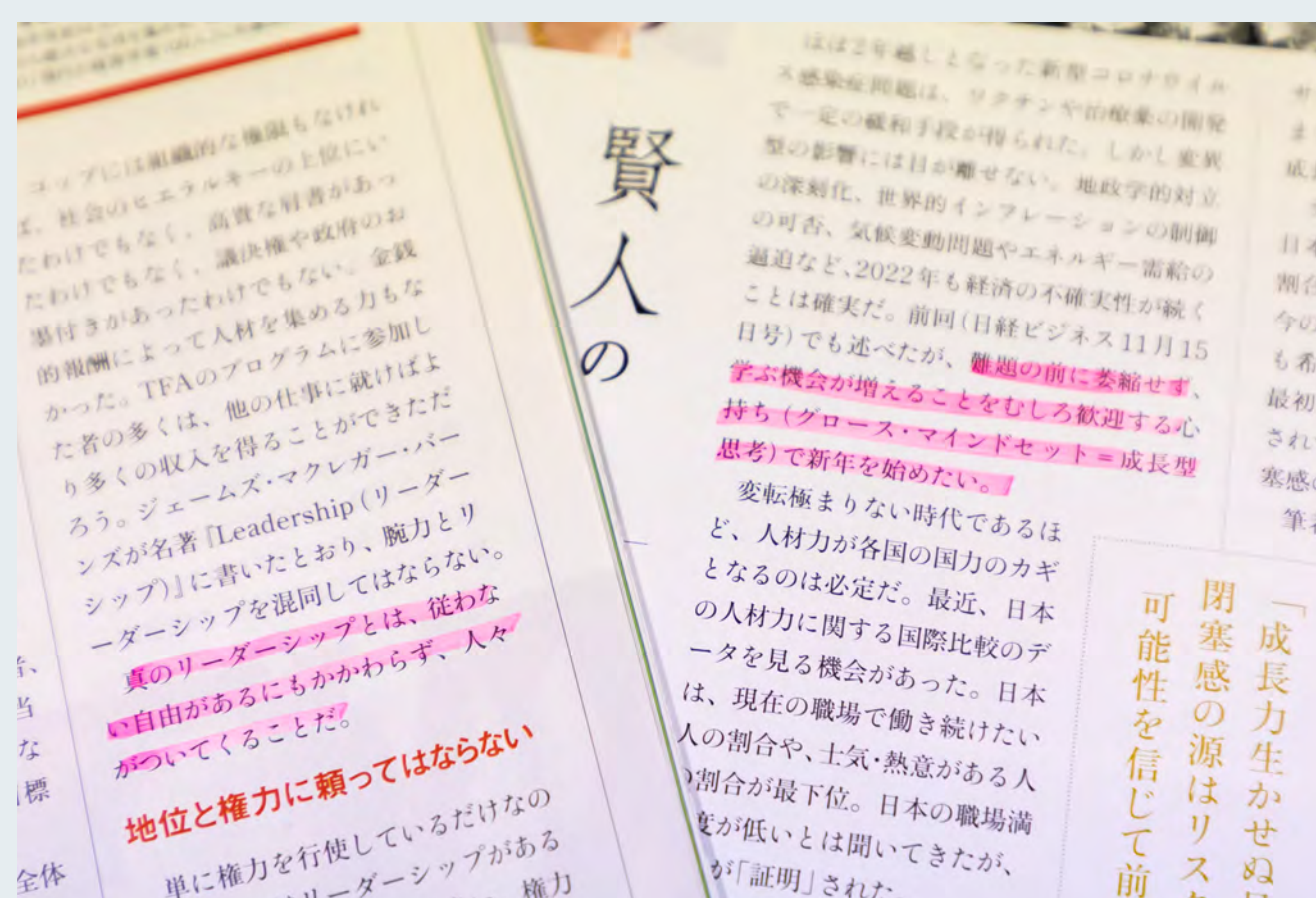 コップには組織的な権限もなけれ
ば、社会のヒエラルキーの上位にい
たわけでもなく、高貴な肩書があっ
たわけでもなく、議決権や政府のお
墨付きがあったわけでもない。金銭
的報酬によって人材を集める力もな
かった。TFAのプログラムに参加し
た者の多くは、他の仕事に就けばよ
り多くの収入を得ることができただ
ろう。ジェームズ・マクレガー・バー
ンズが名著『Leadership（リーダー
シップ）』に書いたとおり、腕力とリ
ーダーシップを混同してはならない。
真のリーダーシップとは、従わな
い自由があるにもかかわらず、人々
がついてくることだ。
地位と権力に頼ってはならない
単に権力を行使しているだけなの
リーダーシップがある
権力
当
な
標
全体
賢人の
ほぼ2年越しとなった新型コロナウイル
ス感染症問題は、ワクチンや治療薬の開発
で一定の緩和手段が得られた。しかし変異
型の影響には目が離せない。地政学的対立
の深刻化、世界的インフレーションの制御
の可否、気候変動問題やエネルギー需給の
逼迫など、2022年も経済の不確実性が続く
ことは確実だ。前回（日経ビジネス11月15
日号）でも述べたが、難題の前に萎縮せず、
学ぶ機会が増えることをむしろ歓迎する心
持ち（グロース・マインドセット＝成長型
思考）で新年を始めたい。
変転極まりない時代であるほ
ど、人材力が各国の国力のカギ
となるのは必定だ。最近、日本
の人材力に関する国際比較のデ
ータを見る機会があった。日本
は、現在の職場で働き続けたい
人の割合や、士気・熱意がある人
の割合が最下位。日本の職場満
度が低いとは聞いてきたが、
が「証明」された
日本
割合
今の
も希
最初
され
塞感の
筆
「成長力生かせぬ
閉塞感の源はリスク
可能性を信じて前